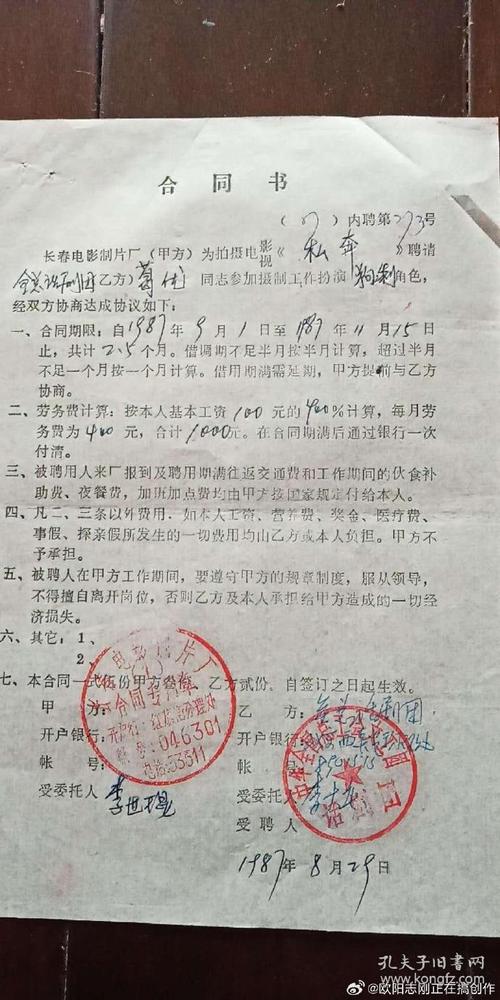 合同书
(87)内聘第273号
长春电影制片厂(甲方)为拍摄电影视《私奔》聘请
全总话剧团乙方)葛优同志参加摄制工作扮演角色,
经双方协商达成协议如下:
一、合同期限:自1987年9月1日至1987年11月15日
止,共计2.5个月。借调期不足半月按半月计算,超过半月
不足一个月按一个月计算。借用期满需延期,甲方提前与乙方
协商。
二、劳务费计算:按本人基本工资100元的400%计算,每月劳
务费为400元,合计1000元。在合同期满后通过银行一次
付清。
三、被聘用人来厂报到及聘用期满往返交通费和工作期间的伙食补
助费、夜餐费,加班加点费均由甲方按国家规定付给本人。
四、凡二、三条以外费用,如本人工资、营养费、奖金、医疗费、
事假、探亲假所发生的一切费用均由乙方或本人负担。甲方不
予承担。
五、被聘人在甲方工作期间,要遵守甲方的规章制度,服从领导,
不得擅自离开岗位,否则乙方及本人承担给甲方造成的一切经
济损失。
六、其它:1、
2、
七、本合同一式伍份甲方叁份,乙方贰份。自签订之日起生效。
甲方: 乙方:全总话剧团
开户银行: 开户银行:
帐号: 帐号:
受委托人 李世 受委托人 李
受聘人
电影制片厂
合同专用章
046301
电话:53511
1987年8月29日
孔夫子旧书网
@欧阳志刚正在搞创作